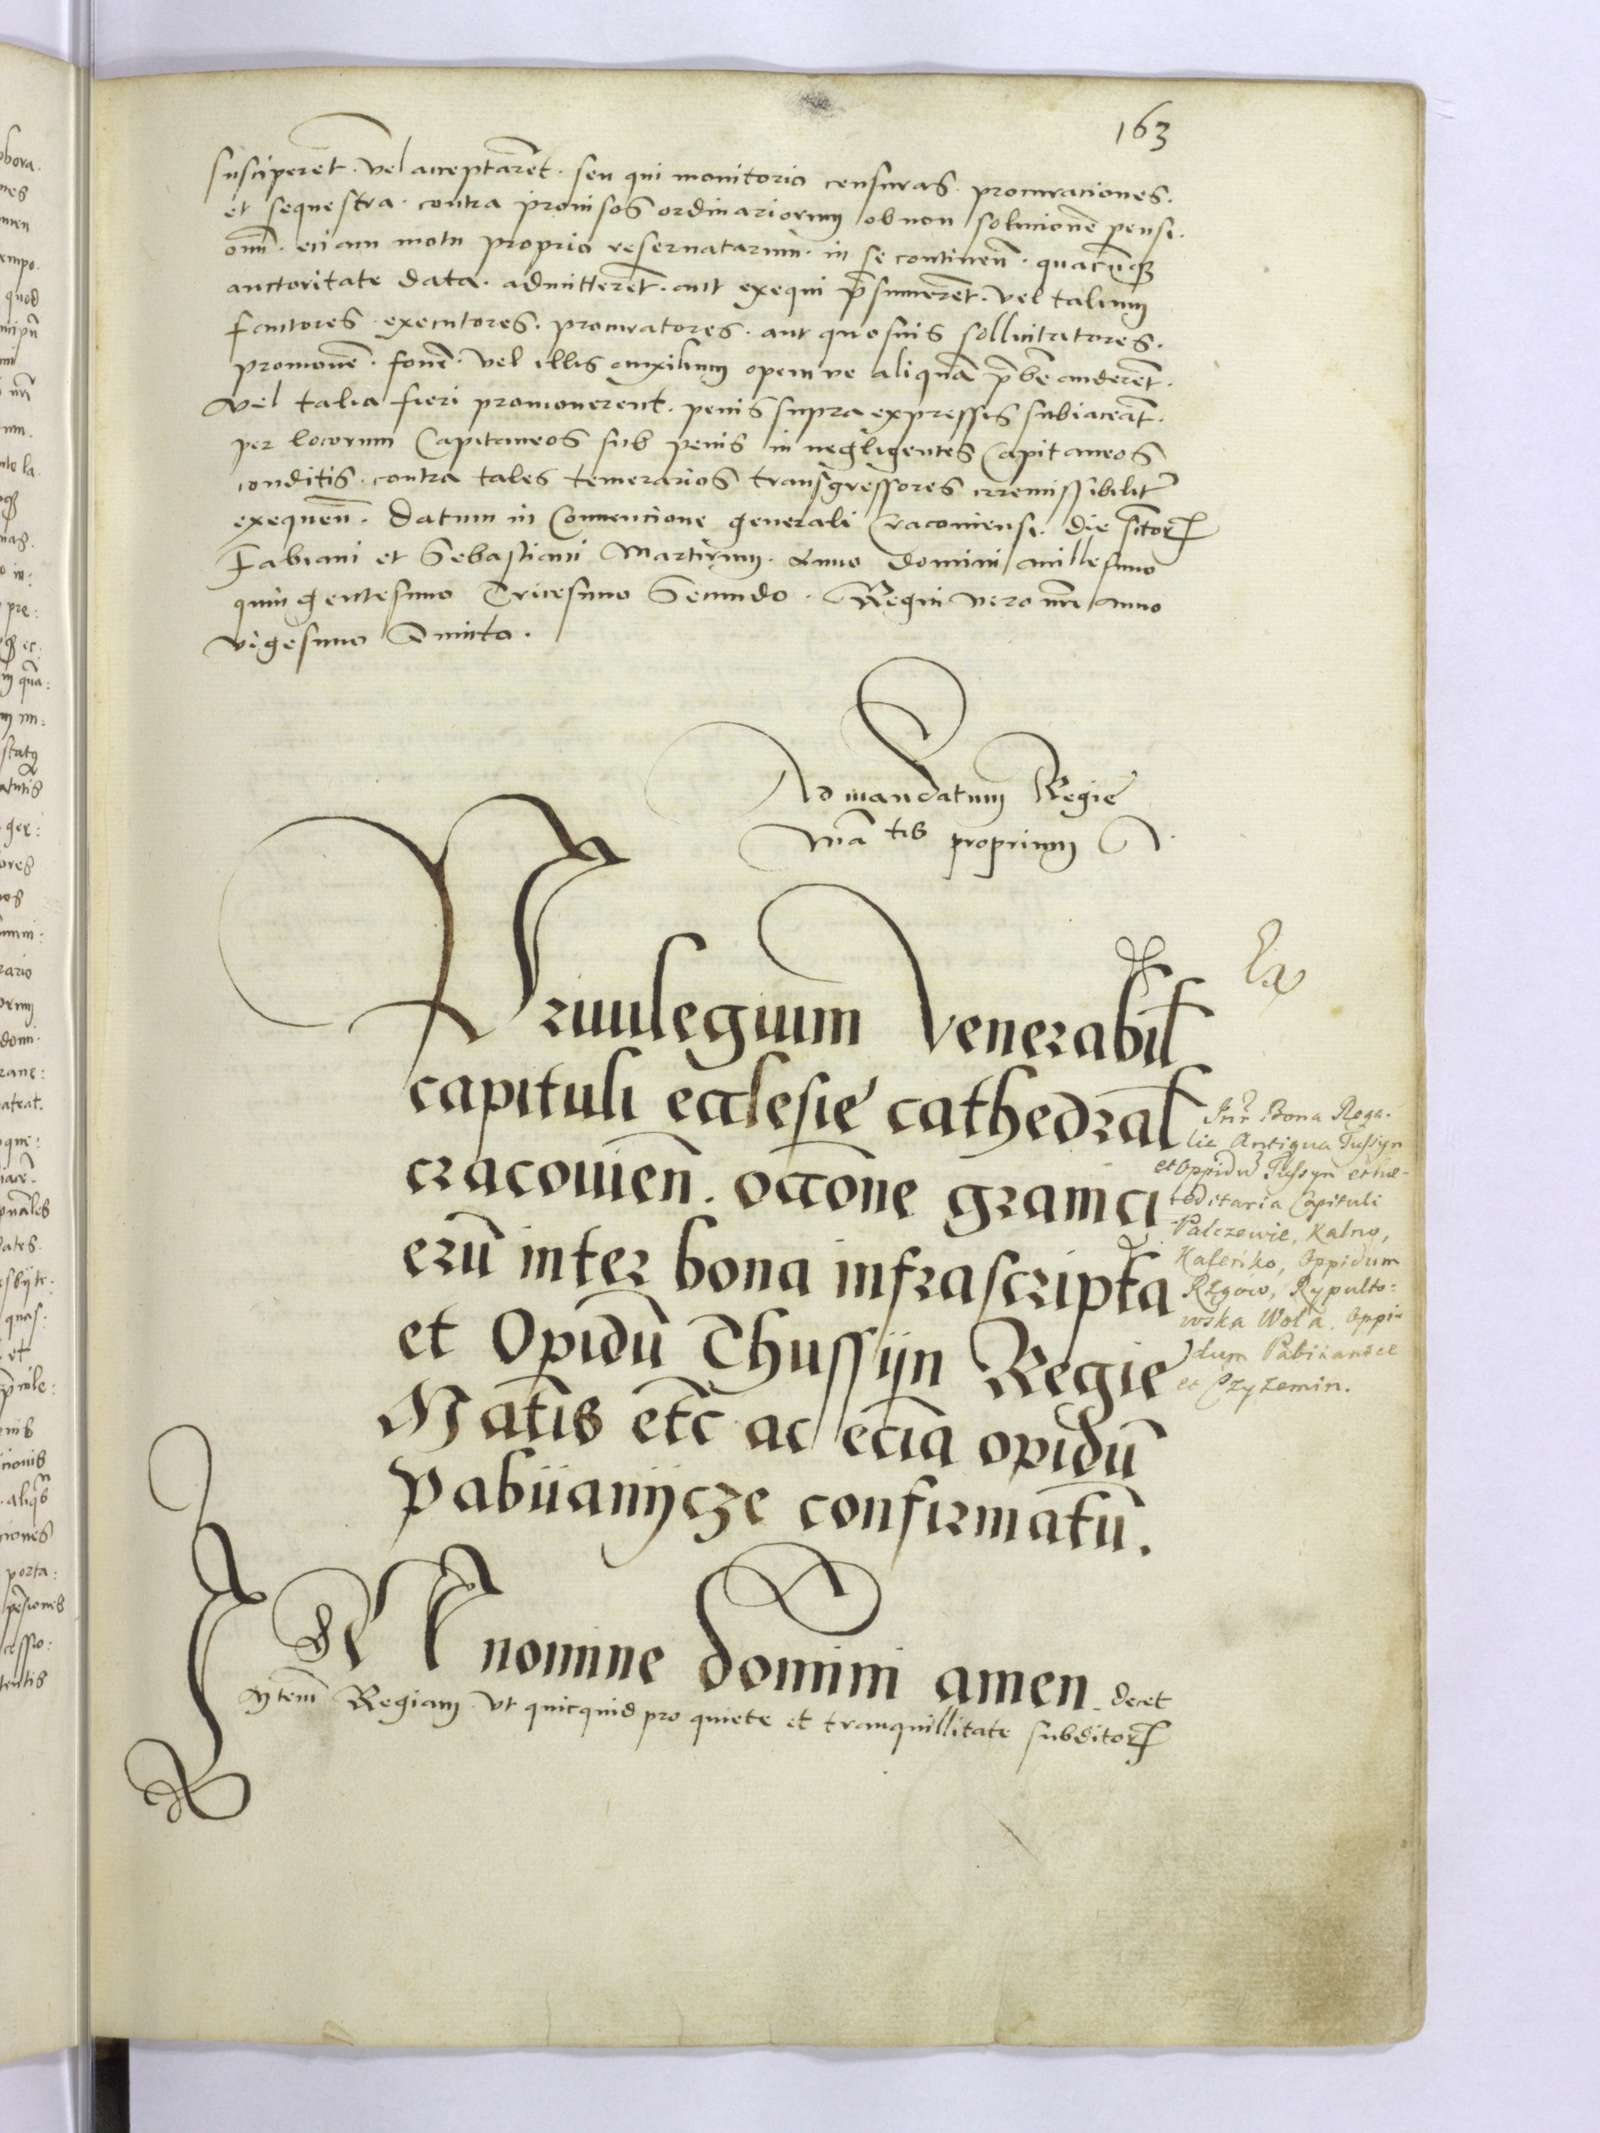 163
susciperēt · vel acceptarēt · seu qui monitoria censuras · procuraciones ·
et sequestra · contra provisos ordinariorum ob non solucionē pensi ·
onū · eciam motu proprio reservatarum · in se continen̄ · quacūq
auctoritate data · admitterēt · aut exequi p̄sumerēt · vel talium
fautores · executores · procuratores · aut quosvis sollicitatores ·
promovē · fovē · vel illis auxilium opem ve aliquā p̄bē auderēt ·
vel talia fieri promoverent · penis supra expressis subiaceāt ·
per locorum Capitaneos sub penis in negligentes Capitaneos
conditis · contra tales temerarios transgressores irremissibilit
exequen̄ · Datum in Convencione generali Cracoviensi · die sctor
Fabiani et Sebastiani Martirum · Anno domini millesimo
quingentesimo Tricesimo Secundo · Regni vero nr̄i anno
vigesimo Quinto ·
Ad mandatum Regie
Mātis proprium
Privilegium Venerabil
capituli ecclesie cathedral
cracovien̄ · occōne granici
erū inter bona infrascripta
et Opidū Thussyn Regie
Matīs etc̄ ac eciā opidū
Pabiianycze confirmatū.
Intr Bona Rega-
lia Antiqua Tussyn
et Oppidū Tussyn et hæ-
reditaria Capituli
Palczewie, Kalno,
Oppidum
Rzgow, Rypulto-
wska Wola. Oppi-
dum Pabianice
et Czyzemin.
IN nomine domini amen. decet
Regiam · Ut quicquid pro quiete et tranquillitate subditor